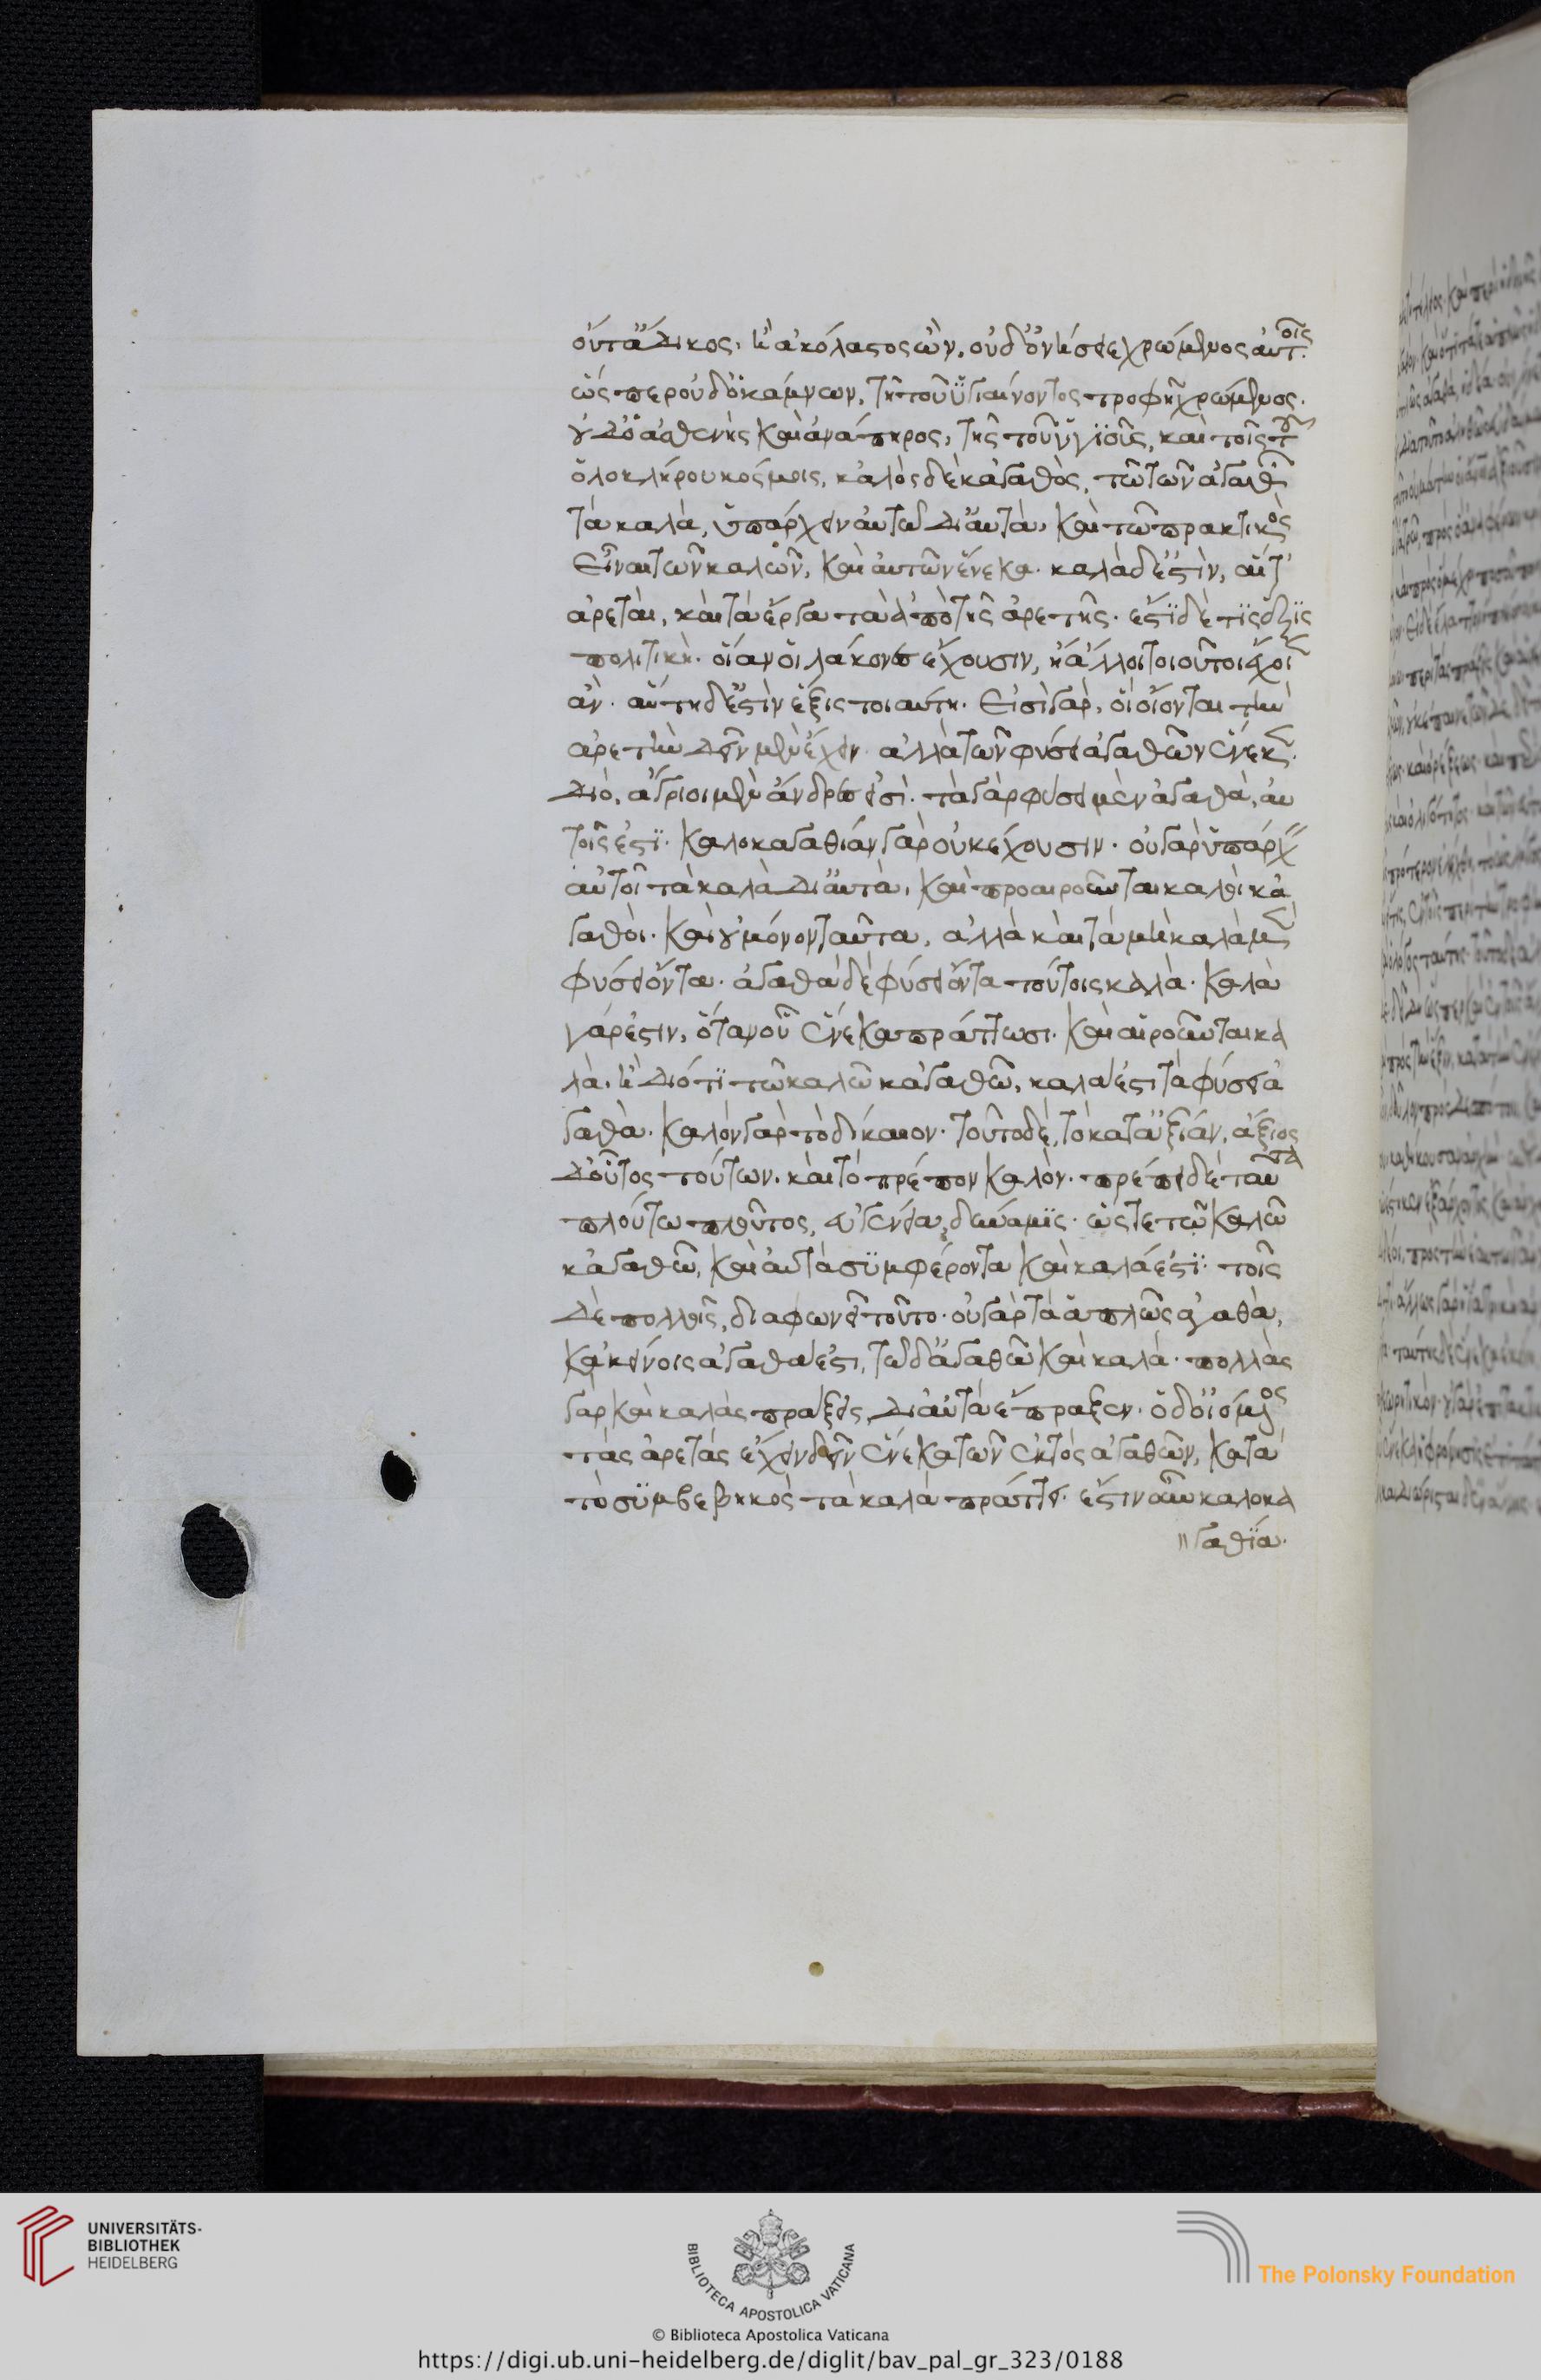 οὔτ' ἄδικος. ἢ ἀκόλαστος ὤν, οὐδ' ὀνήσειε χρώμενος αὐτοῖς.
ὥσπερ οὐδ' ὁ κάμνων, τῇ τοῦ ὑγιαίνοντος τροφῇ χρώμενος.
οὐδ' ὁ ἀσθενὴς καὶ ἀνάπηρος, τῆς τοῦ ὑγιοῦς, καὶ τοῖς τοῦ
ὁλοκλήρου κόσμοις, καλὸς δὲ κἀγαθὸς, τῶ τῶν ἀγαθῶν
τὰ καλὰ, ὑπάρχειν αὐτῶ δι' αὑτὰ, καὶ τῶ πρακτικὸς
εἶναι τῶν καλῶν, καὶ αὐτῶν ἕνεκα. καλὰ δ' ἐστὶν, αἵ τ'
ἀρεταὶ, καὶ τὰ ἔργα τὰ ἀπὸ τῆς ἀρετῆς. ἔστι δὲ τὶς ἕξις
πολιτικὴ. οἵαν οἱ λάκωνες ἔχουσιν, ἢ ἄλλοι τοιοῦτοι ἔχοιεν
ἄν. αὕτη δ' ἐστὶν ἕξις τοιαύτη. εἰσὶ γὰρ, οἳ οἴονται τὴν
ἀρετὴν δεῖν μὲν ἔχειν. ἀλλὰ τῶν φύσει ἀγαθῶν ἕνεκεν.
διὸ, ἄγριοι μὲν ἄνδρες εἰσὶ. τὰ γὰρ φύσει μὲν ἀγαθὰ, αὐ
τοῖς ἐστὶ. καλοκἀγαθίαν γὰρ οὐκ ἔχουσιν. οὐ γὰρ ὑπάρχει
αὐτοῖς τὰ καλὰ δι' αὑτὰ, καὶ προαιροῦνται καλοὶ κἀ
γαθοὶ. καὶ οὐ μόνον ταῦτα, ἀλλὰ καὶ τὰ μὴ καλὰ μὲν
φύσει ὄντα. ἀγαθὰ δὲ φύσει ὄντα τούτοις καλὰ. καλὰ
γάρ ἐστιν, ὅταν οὗ ἕνεκα πράττωσι. καὶ αἱροῦνται κα
λὰ. ἢ διότι τῶ καλῶ κἀγαθῶ, καλά ἐστι τὰ φύσει ἀ
γαθὰ. καλὸν γὰρ τὸ δίκαιον. τοῦτο δὲ, τὸ κατ' ἀξίαν, ἄξιος
δ' οὗτος τούτων. καὶ τὸ πρέπον καλὸν. πρέπει δὲ ταῦτα
πλούτω πλοῦτος, εὐγένεια, δύναμις. ὥστε τῶ καλῶ
κἀγαθῶ, καὶ αὐτὰ συμφέροντα καὶ καλὰ ἐστὶ. τοῖς
δὲ πολλοῖς, διαφωνεῖ τοῦτο. οὐ γὰρ τὰ ἁπλῶς ἀγαθὰ,
κἀκείνοις ἀγαθά ἐστι, τῶ δ' ἀγαθῶ καὶ καλὰ. πολλὰς
γὰρ καὶ καλὰς πράξεις, δι' αὐτὰ ἔπραξεν. ὁ δ' οἰόμενος
τὰς ἀρετὰς ἔχειν δεῖν ἕνεκα τῶν ἐκτὸς ἀγαθῶν, κατὰ
τὸ συμβεβηκὸς τὰ καλὰ πράττει. ἔστιν οὖν καλοκα
γαθία.
UNIVERSITÄTS-
BIBLIOTHEK
HEIDELBERG
BIBLIOTECA APOSTOLICA VATICANA
The Polonsky Foundation
© Biblioteca Apostolica Vaticana
https://digi.ub.uni-heidelberg.de/diglit/bav_pal_gr_323/0188